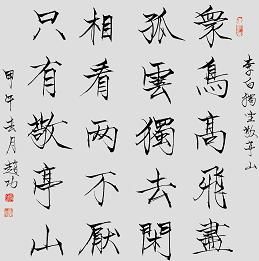 李白獨坐敬亭山
眾鳥高飛盡
孤雲獨去閑
相看两不厭
只有敬亭山
甲午